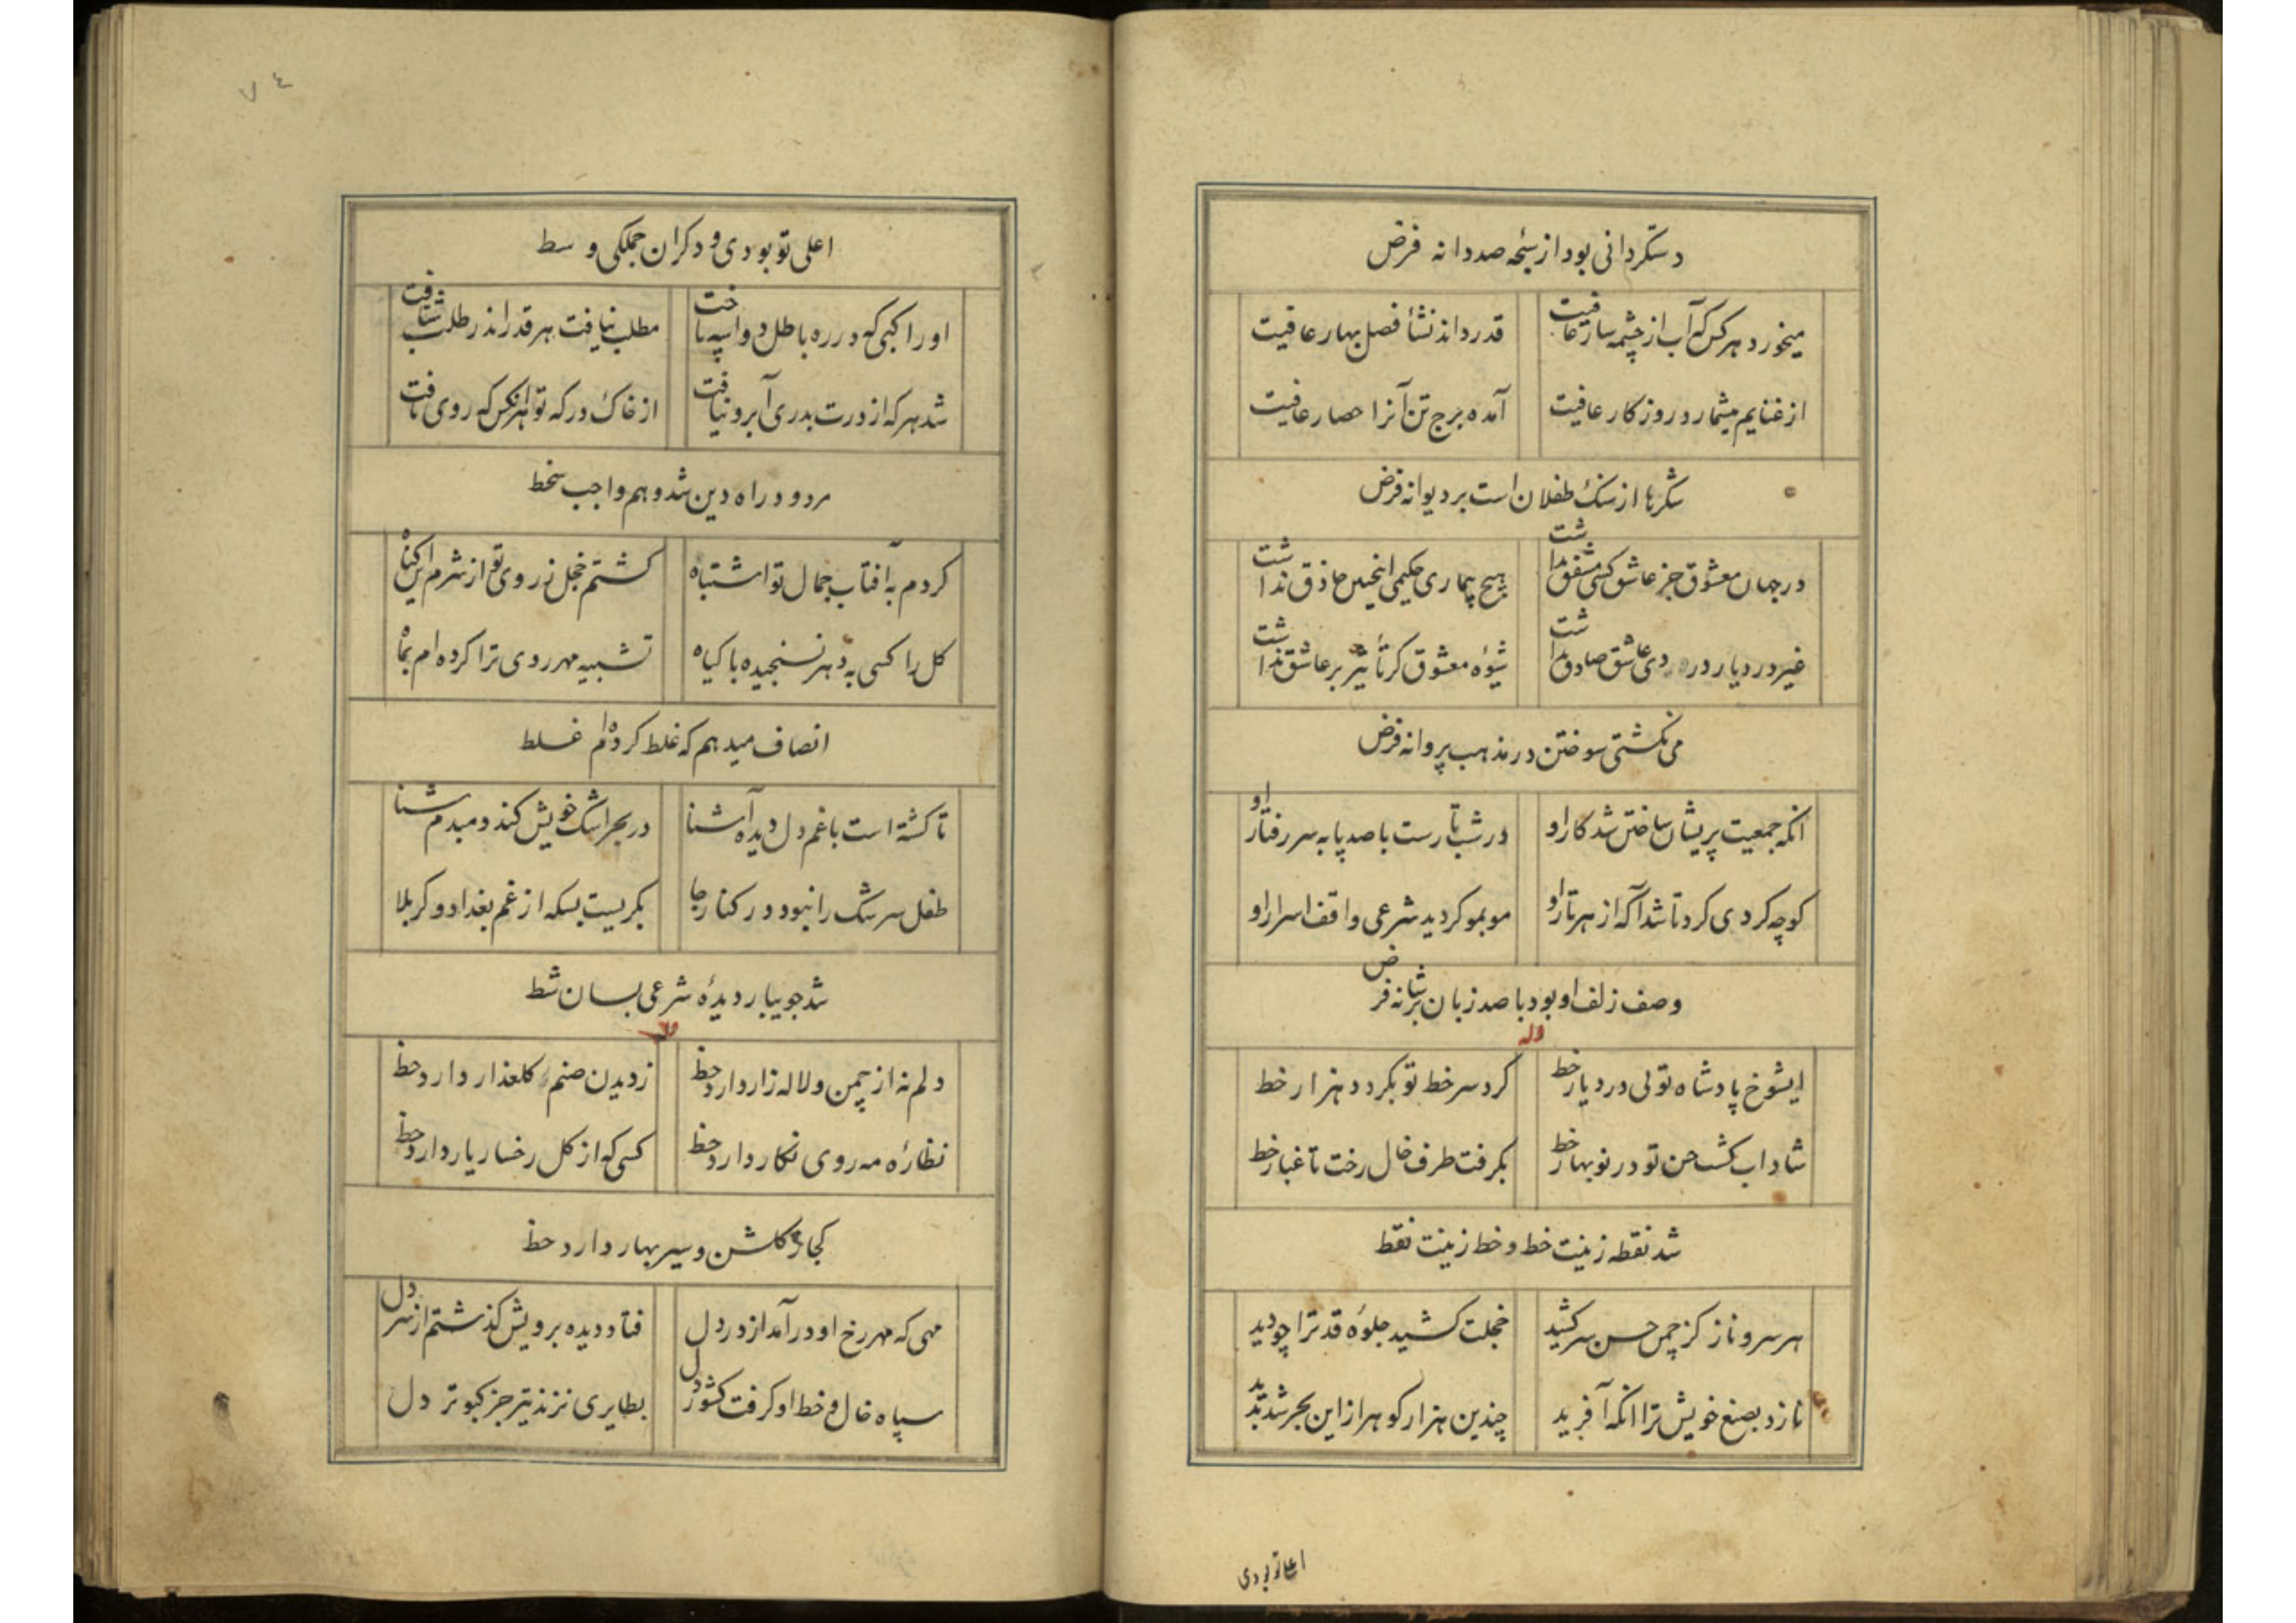 دستکردانی بود از سبحه صد دانه فرض
میخورد هر کس که آب از چشمه سار عافیت
قدر داند نشأ فصل بهار عافیت
از غنایم میشمارد روزکار عافیت
آمده برج تن آنرا حصار عافیت
شکرها از سنک طفلان است بر دیوانه فرض
در جهان معشوق جز عاشق کسی مشفق نداشت
هیچ بیماری حکیمی اینچنین حاذق نداشت
غیر درد یار دردی عاشق صادق نداشت
شیوه معشوق کر تأثیر بر عاشق نداشت
می نکشتی سوختن در مذهب پروانه فرض
انکه جمعیت پریشان ساختن شد کار او
در شب تارست با صد پا به سر رفتار او
کوچه کردی کرد تا شد آکه از هر تار او
موبمو کردید شرعی واقف اسرار او
وصف زلف او بود با صد زبان بر شانه فرض
وله
ایشوخ پادشاه تولی در دیار خط
کرد سر خط تو بکردد هزار خط
شاداب کشت حسن تو در نوبهار خط
بکرفت طرف خال رخت تا غبار خط
شد نقطه زینت خط و خط زینت نقط
هر سرو ناز کز چمن حسن سر کشید
خجلت کشید جلوه قد ترا چو دید
نازد بصنع خویش ترا انکه آفرید
چندین هزار کوهر از این بحر شد پدید
اعلی تو بودی
٧٤
اعلی تو بودی و دکران جملکی وسط
او راکبی که در ره باطل دو اسپه تاخت
مطلب نیافت هر قدر اندر طلب شتافت
شد هر که از درت بدری آبرو نیافت
از خاک درکه تو هر انکس که روی تافت
مردود راه دین شد و هم واجب سخط
کردم به آفتاب جمال تو اشتباه
کشتم خجل ز روی تو از شرم این کناه
کل را کسی به دهر نسنجیده با کیاه
تشبیه مهر روی ترا کرده ام بماه
انصاف میدهم که غلط کرده ام غلط
تا کشته است با غم دل دیده آشنا
در بحر اشک خویش کند دمبدم شنا
طفل سرشک را نبود در کنار جا
بکریست بسکه از غم بغداد و کربلا
شد جویبار دیدهٔ شرعی بسان شط
وله
دلم نه از چمن و لاله زار دارد حظ
ز دیدن صنم کلعذار دارد حظ
نظارهٔ مه روی نکار دارد حظ
کسی که از کل رخسار یار دارد حظ
کجا ز کلشن و سیر بهار دارد حظ
مهی که مهر رخ او در آمد از در دل
فتاد دیده برویش کذشتم از سر دل
سپاه خال و خط او کرفت کشور دل
بطایری نزند تیر جز کبوتر دل